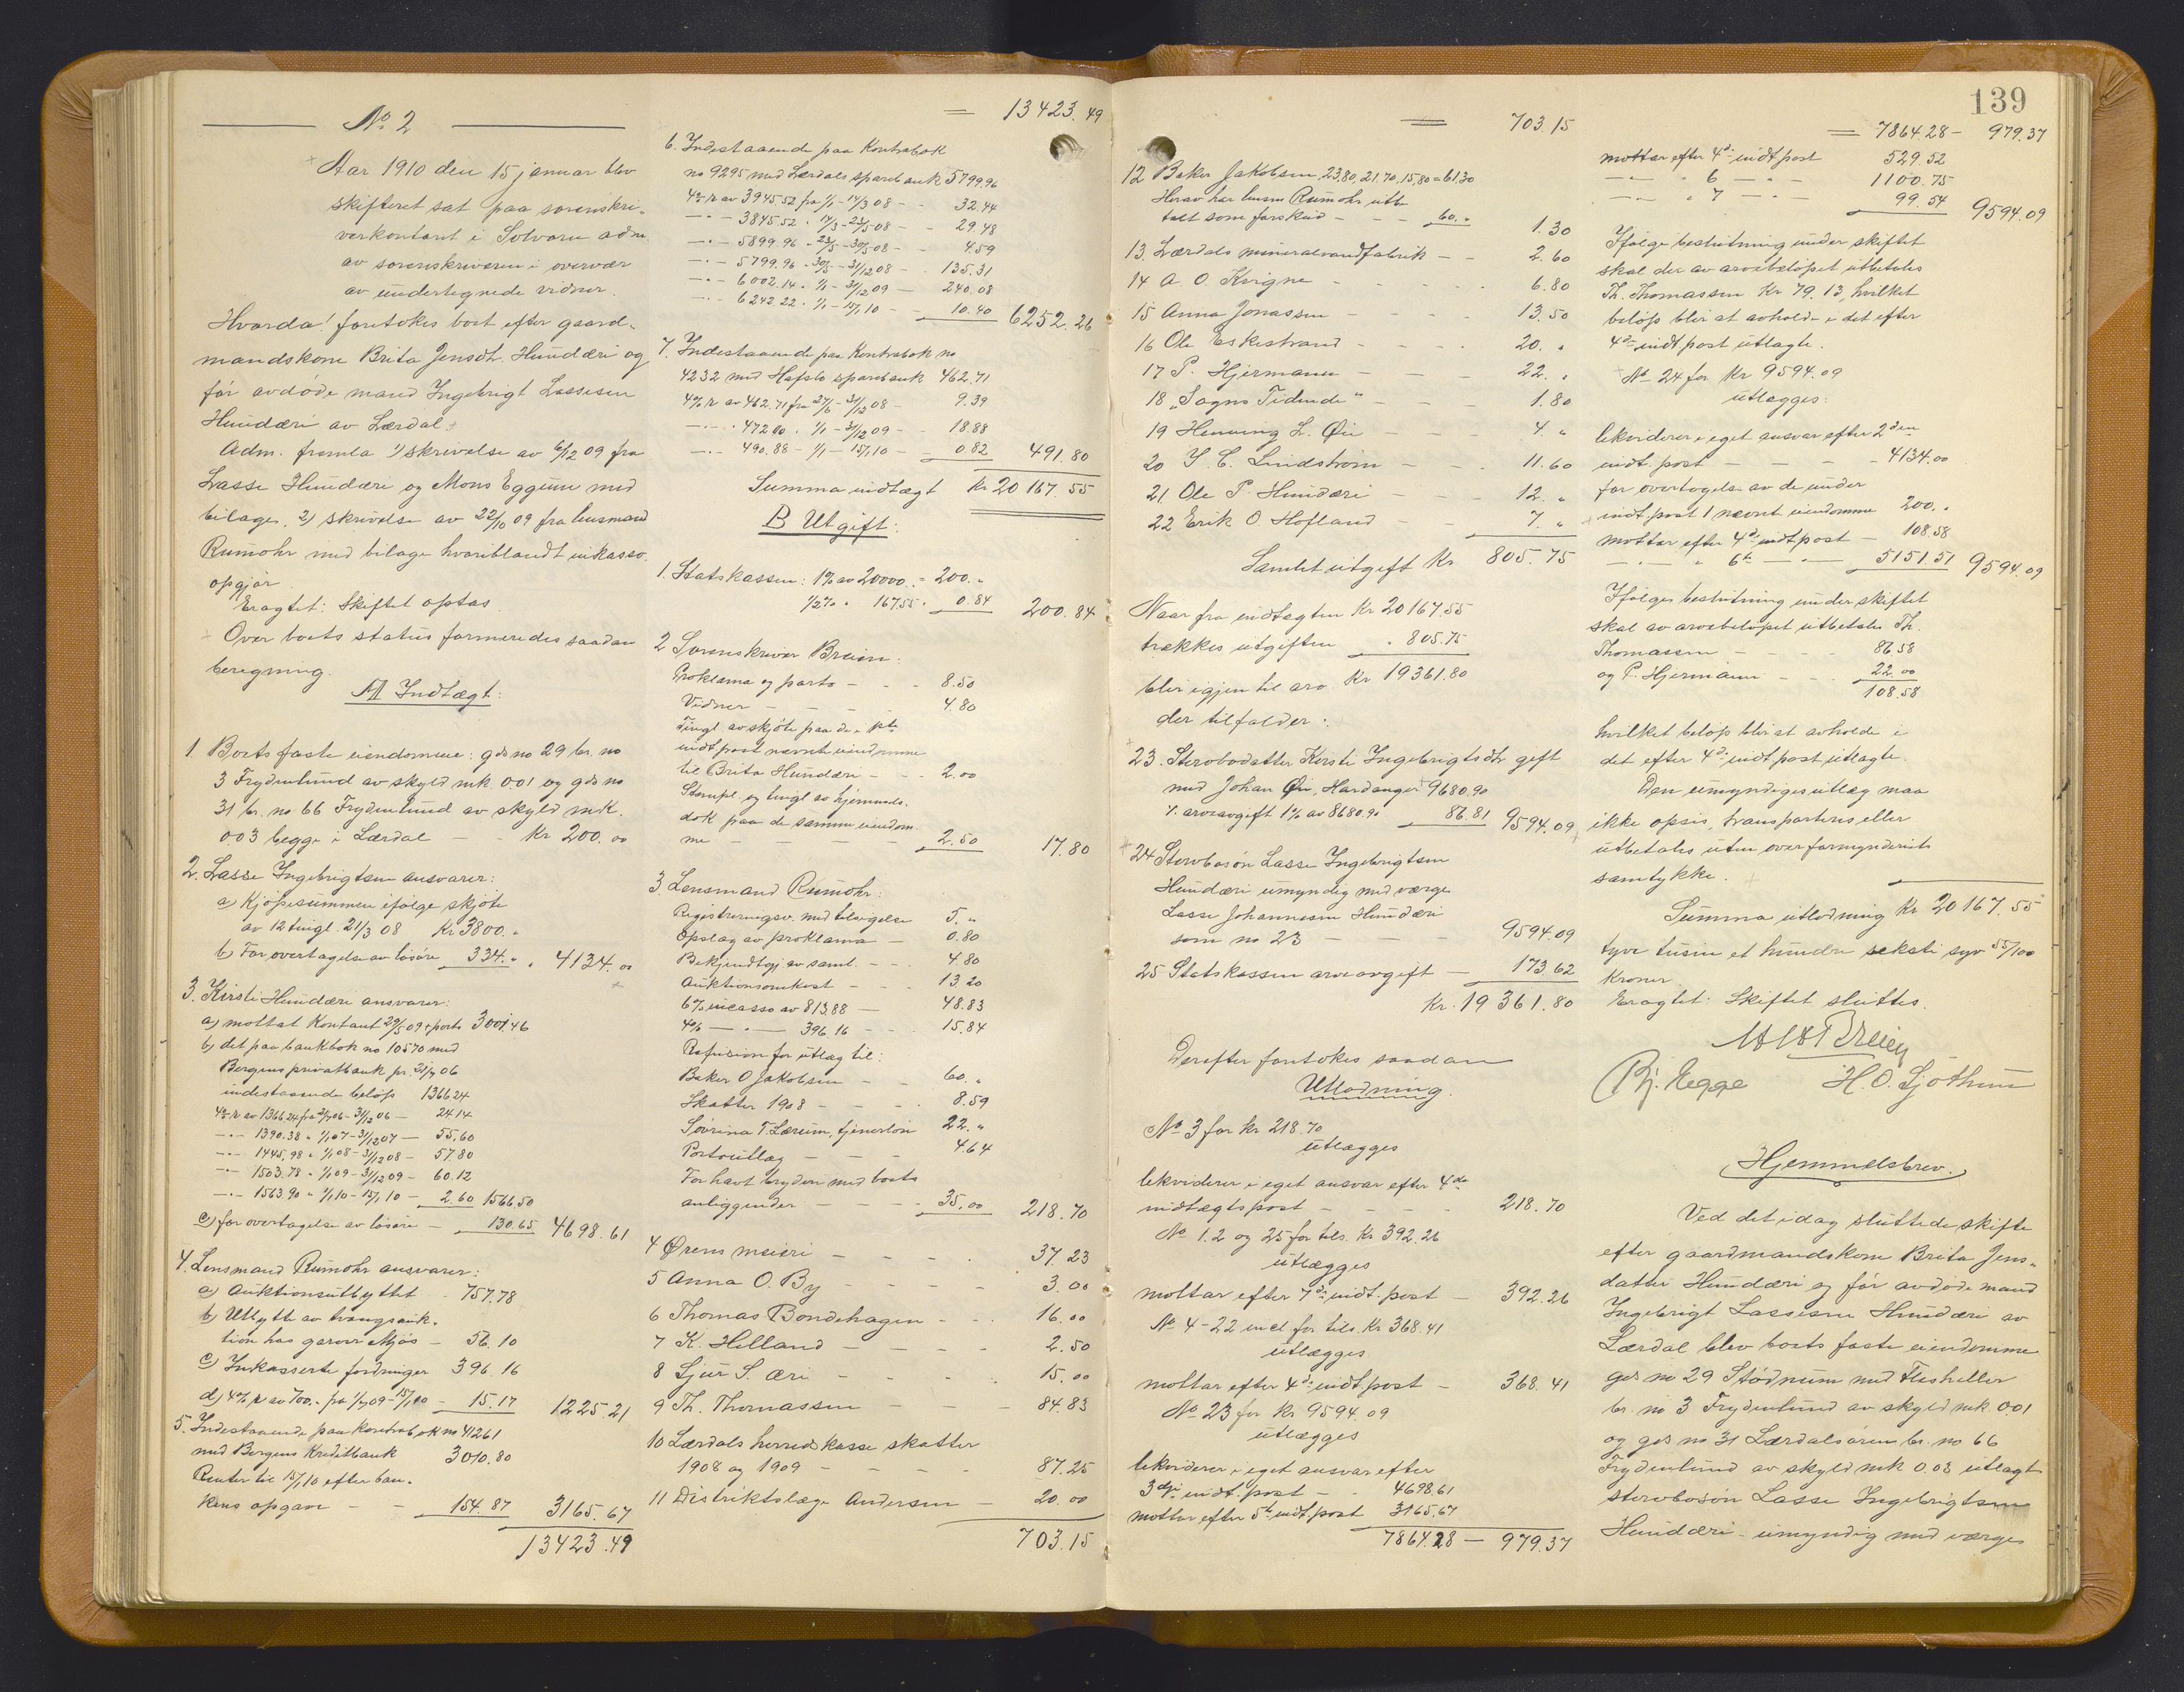 No 2
Aar 1910 den 15 januar blev
skifteret sat paa sorenskri-
verkontoret i Solvorn adm.
av sorenskriveren i overvær
av undertegnede vidner.
Hvorda! foretokes bort efter gaard-
mandskone Brita Jensdtr. Hundæri og
før avdøde mand Ingebrigt Lassesen
Hundæri av Lærdal.
Adm. fremla 1) skrivelse av 6/12 09 fra
Lasse Hundæri og Mons Eggum med
bilager, 2) skrivelse av 22/10 09 fra lensmand
Rumohr med bilage hvoriblandt inkasso-
opgjør.
Eragtet: Skiftet optas.
Over boets status formeredes saadan
beregning.
A Indtægt:
1. Boets faste eiendomme: gds no 29 br. no
3 Frydenlund av skyld mk. 0.01 og gds no
31 br. no 66 Frydenlund av skyld mk.
0.03 begge i Lærdal – – Kr 200.00
2. Lasse Ingebrigtsen ansvarer:
a) Kjøpesummen ifølge skjøte
av 12 tingl. 21/3 08 Kr 3800. "
b) For overtagelse av løsøre 334. " " 4134.00
3. Kirsti Hundæri ansvarer:
a) mottat Kontant 29/5 09 + porto 3001.46
b) det paa bankbok no 10570 med
Bergens privatbank pr. 21/7 06
indestaaende beløp 1366.24
4% r. av 1366.24 fra 21/7 06 – 31/12 06 – 24.14
–"– 1390.38 " 1/1 07 – 31/12 07 – 55.60
–"– 1445.98 " 1/1 08 – 31/12 08 – 57.80
–"– 1503.78 " 1/1 09 – 31/12 09 – 60.12
–"– 1563.90 " 1/1 10 – 15/1 10 – 2.60 1566.50
c) for overtagelse av løsøre – 130.65 4698.61
4. Lensmand Rumohr ansvarer:
a) Auktionsutbyttet – 757.78
b) Utbytte av tvangsauk-
tion hos garver Mjøs – 56.10
c) Inkasserte fordringer 396.16
d) 4% r. av 700.- fra 1/7 09 – 15/1 10 – 15.17 1225.21
5. Indestaaende paa kontrabok no 41261
med Bergens Kreditbank 3010.80
Renter til 15/1 10 efter ban-
kens opgave – – 154.87 3165.67
13423.49
= 13423.49
6. Indestaaende paa Kontrabok
no 9295 med Lærdals sparebank 5799.96
4% r av 3945.52 fra 1/1 – 14/3 08 – – 32.44
–"– 3845.52 " 14/3 – 23/5 08 – – 29.48
–"– 5899.96 " 23/5 – 30/5 08 – 4.59
–"– 5799.96 " 30/5 – 31/12 08 – 135.31
–"– 6002.14 " 1/1 – 31/12 09 – 240.08
–"– 6242.22 " 1/1 – 15/1 10 – 10.40 6252.26
7. Indestaaende paa Kontrabok no
4232 med Hafslo sparebank 462.71
4% r av 462.71 fra 27/6 – 31/12 08 – 9.39
–"– 472.10 " 1/1 – 31/12 09 – 18.88
–"– 490.88 – 1/1 – 15/1 10 – 0.82 491.80
Summa indtægt Kr 20167.55
B Utgift:
1. Statskassen: 1% av 20000. = 200. "
1/2% " 167.55 " 0.84 200.84
2 Sorenskriver Breien:
Proklama og porto – – 8.50
Vidner – – – 4.80
Tingl. av skjøte paa de i pkt.
indt. post nævnte eiendomme
til Brita Hundæri – – 2.00
Stempl. og tingl. av hjemmels-
dok paa de samme eiendom-
me – – – – 2.50 17.80
3. Lensmand Rumohr:
Registreringsv. med tilsigelse 5. "
Opslag av proklama – 0.80
Bekjendtgj. av saml. – – 4.80
Auktionsomkost – – 13.20
6% incasso av 813.88 – 48.83
4% –"– 396.16 – – 15.84
Refusion for utlæg til:
Baker O Jakobsen – – 60. "
Skatter 1908 – – – 8.59
Sevrina T. Lærum, tjenerløn 22. "
Portoutlæg – – – 4.64
For havt bryderi med boets
anliggender – – – 35.00 218.70
4 Ørens meieri – – – 37.23
5 Anna O. By – – – 3.00
6 Thomas Bondehagen – – 16.00
7 K. Helland – – – 2.50
8 Sjur S. Æri – – – 15.00
9 Th. Thomassen – – – 84.83
10 Lærdals herredskasse skatter
1908 og 1909 – – – 87.25
11 Distriktslæge Andersen – 20.00
703.15
= 703.15
12 Baker Jakobsen, 23.80, 21.70, 15.80 = 61.30
Herav har lensm Rumohr utbe-
talt som forskud – – – 60. " 1.30
13. Lærdals mineralvandfabrik – – 2.60
14 A. O. Kvigne – – – 6.80
15 Anna Jonassen – – – 13.50
16 Ole Eskestrand – – – 20. "
17 P. Hjermann – – – 22. "
18 „Sogns Tidende" – – – 1.80
19 Henning L. Øie – – – 4. "
20 J. C. Lindstrøm – – – 11.60
21 Ole P. Hundæri – – – 12. "
22 Erik O. Hofland – – 7. "
Samlet utgift Kr 805.75
Naar fra indtægten Kr 20167.55
trækkes utgiften " 805.75
blir igjen til arv Kr 19361.80
der tilfalder:
23. Stervbodatter Kirsti Ingebrigtsdtr gift
med Johan Øie, Hardanger 9680.90
÷ arveavgift 1% av 8680.90 86.81 9594.09
24 Stervbosøn Lasse Ingebrigtsen
Hundæri umyndig med værge
Lasse Johannesen Hundæri
som no 23 – – – 9594.09
25 Statskassen arveavgift – 173.62
Kr. 19361.80
Derefter foretokes saadan
Utlodning.
No 3 for kr 218.70
utlægges
likviderer i eget ansvar efter 4de
indtægtspost – – – 218.70
No 1. 2 og 25 for tils. Kr 392.26
utlægges
mottar efter 7de indt. post – 392.26
No 4–22 incl. for tils. Kr 368.41
utlægges
mottar efter 4de indt post – 368.41
No 23 for Kr 9594.09
utlægges
likviderer i eget ansvar efter
3dje indt. post – – 4698.61
mottar efter 5te indt. post 3165.67
7864.28 – 979.37
139
= 7864.28 – 979.37
mottar efter 4de indt post 529.52
–"– " 6 –"– 1100.75
–"– " 7 –"– 99.54 9594.09
Ifølge beslutning under skiftet
skal der av arvebeløpet utbetales
Th. Thomassen Kr 79.13, hvilket
beløp blir at avholde i det efter
4de indt post utlagte.
No 24 for Kr 9594.09
utlægges:
likviderer i eget ansvar efter 2den
indt. post – – – – 4134.00
for overtagelse av de under
indt. post 1 nævnte eiendomme 200. "
mottar efter 4de indt post – 108.58
–"– " 6te –"– 5151.51 9594.09
Ifølge beslutning under skiftet
skal av arvebeløpet utbetales Th.
Thomassen – – – 86.58
og P. Hjermann – – 22.00
108.58
hvilket beløp blir at avholde i
det efter 4de indt. post utlagte.
Den umyndiges utlæg maa
ikke opsies, transporteres eller
utbetales uten overformynderiets
samtykke.
Summa utlodning Kr 20167.55
tyve tusin et hundre seksti syv 55/100
Kroner.
Eragtet: Skiftet sluttes.
Breien
Bj. Hegge H. O. Sjøthun
Hjemmelsbrev.
Ved det idag sluttede skifte
efter gaardmandskone Brita Jens-
datter Hundæri og før avdøde mand
Ingebrigt Lassesen Hundæri av
Lærdal blev boets faste eiendomme
gds no 29 Stødnum med Flesheller
br. no 3 Frydenlund av skyld mk. 0.01
og gds no 31 Lærdalsøren br. no 66
Frydenlund av skyld mk 0.03 utlagt
stervbosøn Lasse Ingebrigtsen
Hundæri – umyndig med værge